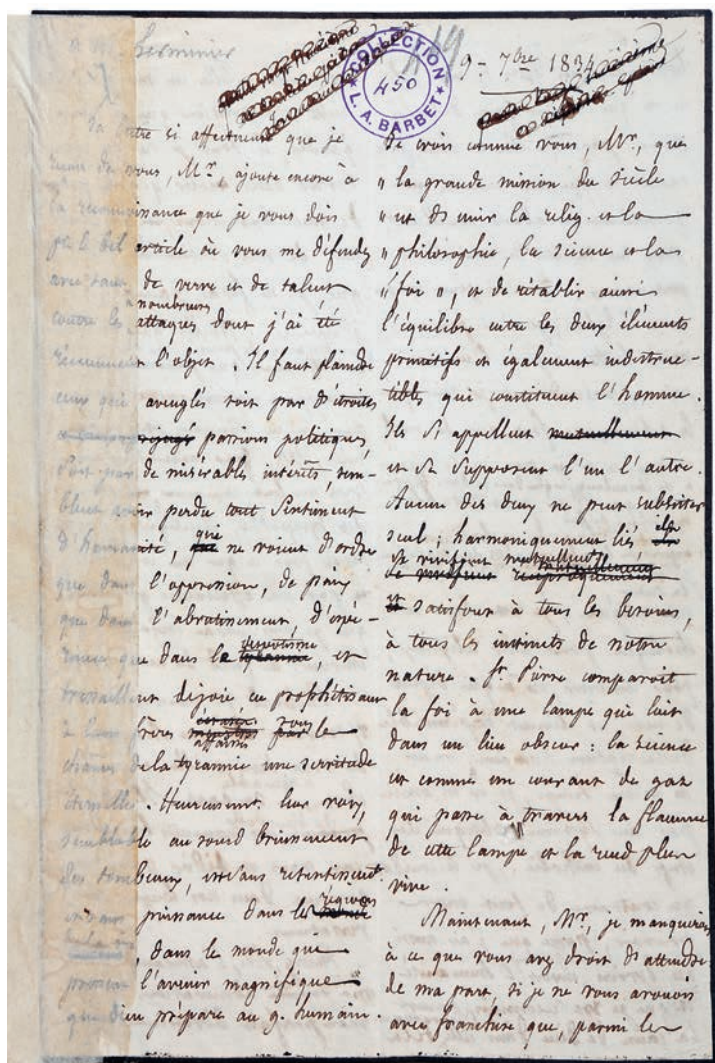 Lherminier
COLLECTION
450
L. A. BARBET
9 - 7bre 1834
La lettre si affectueuse que je
reçois de vous, Mr, ajoute encore à
la reconnoissance que je vous dois
pr le bel article où vous me défendez
avec tant de verve et de talent
nombreuses
contre les attaques dont j'ai été
récemment l'objet. Il faut plaindre
ceux qui aveuglés soit par d'étroites
passions politiques,
soit par de misérables intérêts, sem-
blent avoir perdu tout sentiment
d'humanité, qui ne voient d'ordre
que dans l'oppression, de paix
que dans l'abrutissement, d'espé-
rance que dans le despotisme, et
tressaillent de joie en prophétisant
à leurs frères affaissés sous le
chaînes de la tyrannie une servitude
éternelle. Heureusement leur voix,
semblable au sourd bruissement
des tombeaux, est sans retentissement
et sans puissance dans les régions
, dans le monde que
l'avenir magnifique
que Dieu prépare au g. humain.
Je crois comme vous, Mr, que
" la grande mission du siècle
" est d'unir la relig. et la
" philosophie, la science et la
" foi ", et de rétablir ainsi
l'équilibre entre les deux éléments
primitifs et également indestruc-
tibles qui constituent l'homme.
Ils s'appellent mutuellement
et se supposent l'un l'autre.
Aucun des deux ne peut subsister
seul ; harmoniquement liés ils
se vivifient mutuellement
et satisfont à tous les besoins,
à tous les instincts de notre
nature. St Pierre comparoit
la foi à une lampe qui luit
dans un lieu obscur : la science
est comme un courant de gaz
qui passe à travers la flamme
de cette lampe et la rend plus
vive.
Maintenant, Mr, je manquerois
à ce que vous avez droit d'attendre
de ma part, si je ne vous avouois
avec franchise que, parmi les